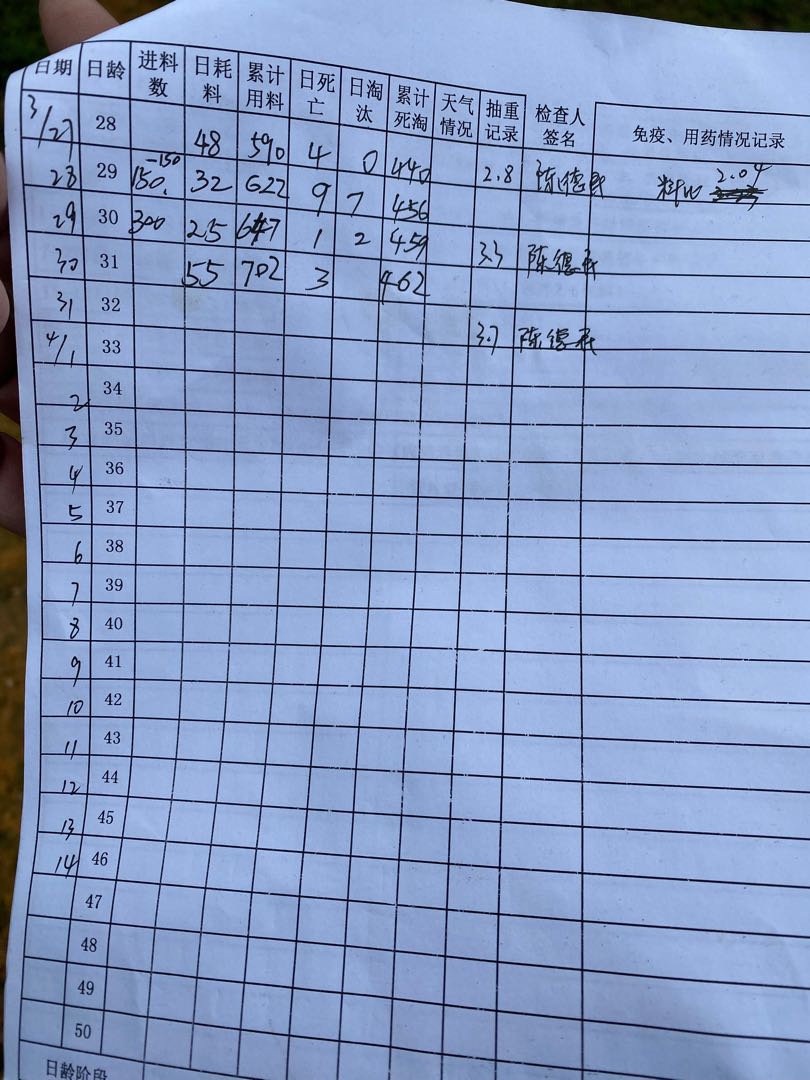 日期 日龄 进料数 日耗料 累计用料 日死亡 日淘汰 累计死淘 天气情况 抽重记录 检查人签名 免疫、用药情况记录
3/27 28 48 590 4 0 440
28 29 150 -150 32 622 9 7 456 2.8 陈德 料比 2.04
29 30 300 25 647 1 2 459
30 31 55 702 3 462 3.3 陈德
31 32
4/1 33 3.7 陈德
2 34
3 35
4 36
5 37
6 38
7 39
8 40
9 41
10 42
11 43
12 44
13 45
14 46
47
48
49
50
日龄阶段